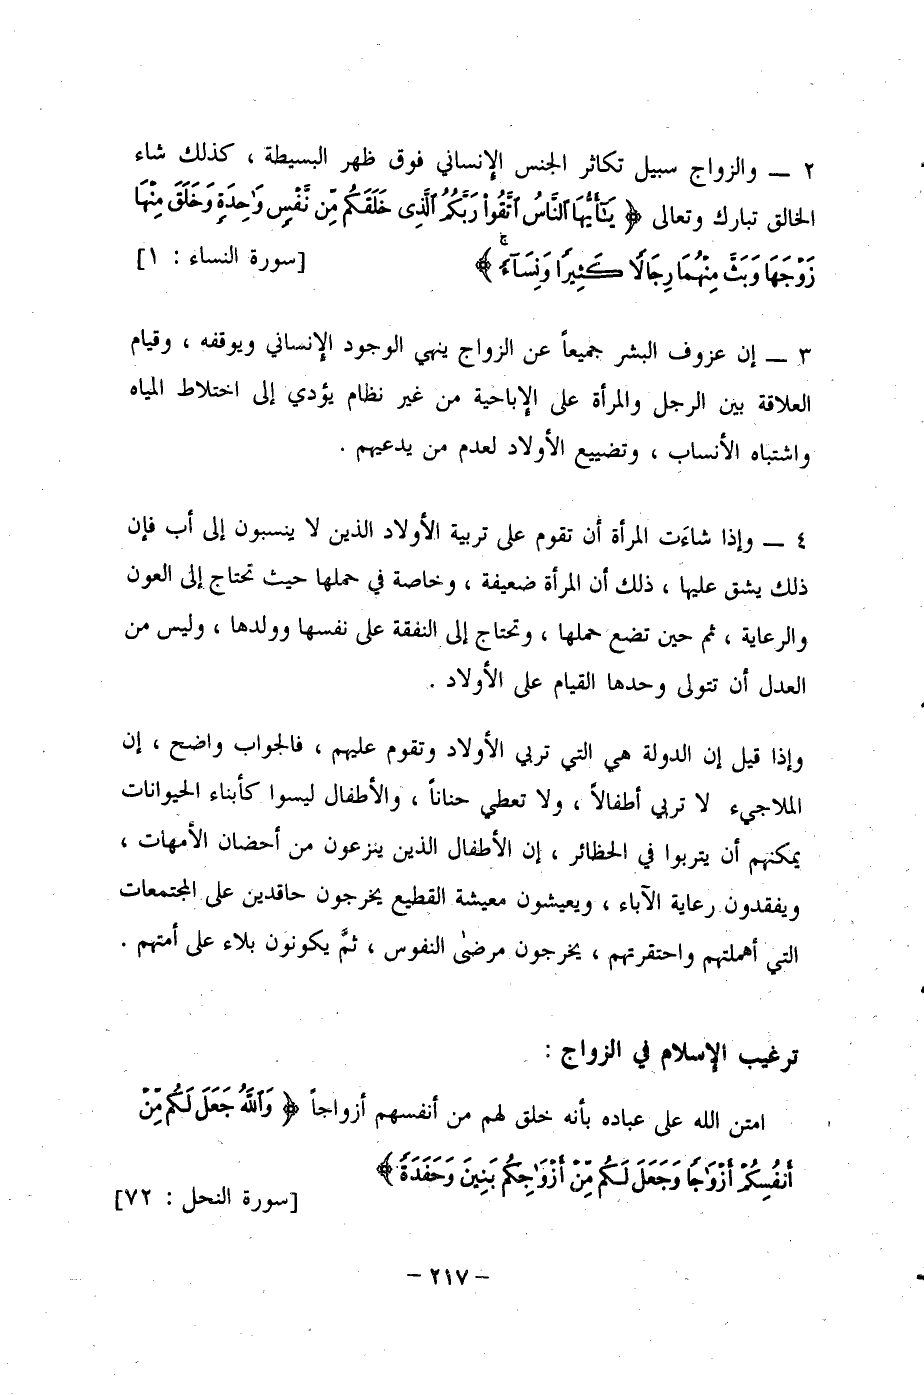 ٢ ــ والزواج سبيل تكاثر الجنس الإنساني فوق ظهر البسيطة ، كذلك شاء
الخالق تبارك وتعالى ﴿ يَٰٓأَيُّهَا ٱلنَّاسُ ٱتَّقُوا۟ رَبَّكُمُ ٱلَّذِى خَلَقَكُم مِّن نَّفْسٍ وَٰحِدَةٍ وَخَلَقَ مِنْهَا
زَوْجَهَا وَبَثَّ مِنْهُمَا رِجَالًا كَثِيرًا وَنِسَآءً ۚ ﴾ [سورة النساء : ١]
٣ ــ إن عزوف البشر جميعاً عن الزواج ينهي الوجود الإنساني ويوقفه ، وقيام
العلاقة بين الرجل والمرأة على الإباحية من غير نظام يؤدي إلى اختلاط المياه
واشتباه الأنساب ، وتضييع الأولاد لعدم من يدعيهم .
٤ ــ وإذا شاءَت المرأة أن تقوم على تربية الأولاد الذين لا ينسبون إلى أب فإن
ذلك يشق عليها ، ذلك أن المرأة ضعيفة ، وخاصة في حملها حيث تحتاج إلى العون
والرعاية ، ثم حين تضع حملها ، وتحتاج إلى النفقة على نفسها وولدها ، وليس من
العدل أن تتولى وحدها القيام على الأولاد .
وإذا قيل إن الدولة هي التي تربي الأولاد وتقوم عليهم ، فالجواب واضح ، إن
الملاجيء لا تربي أطفالاً ، ولا تعطي حناناً ، والأطفال ليسوا كأبناء الحيوانات
يمكنهم أن يتربوا في الحظائر ، إن الأطفال الذين ينزعون من أحضان الأمهات ،
ويفقدون رعاية الآباء ، ويعيشون معيشة القطيع يخرجون حاقدين على المجتمعات
التي أهملتهم واحتقرتهم ، يخرجون مرضىٰ النفوس ، ثمَّ يكونون بلاء على أمتهم .
ترغيب الإسلام في الزواج :
امتن الله على عباده بأنه خلق لهم من أنفسهم أزواجاً ﴿ وَٱللَّهُ جَعَلَ لَكُم مِّنْ
أَنفُسِكُمْ أَزْوَٰجًا وَجَعَلَ لَكُم مِّنْ أَزْوَٰجِكُم بَنِينَ وَحَفَدَةً ﴾ [سورة النحل : ٧٢]
– ٢١٧ –